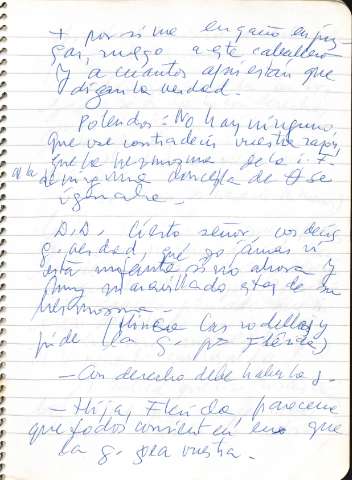 + por si me engaño en juz-
gar, ruego a este caballero
y a cuantos aquí están que
digan la verdad.
Polendos: No hay ninguno,
que ose contradecir vuestra razón,
que la hermosura de la i. F.
a la de ninguna doncella de se
iguale.
D.D. Cierto señor, vos decís
g. verdad, que yo jamás vi
esta infanta sino ahora y
muy maravillado estoy de su
hermosura.
(Hinca las rodillas y
pide la g. por Flérida)
— Con derecho debe haberla.
— Hija, Flérida, paréceme
que todos consienten en que
la g. sea vuestra.